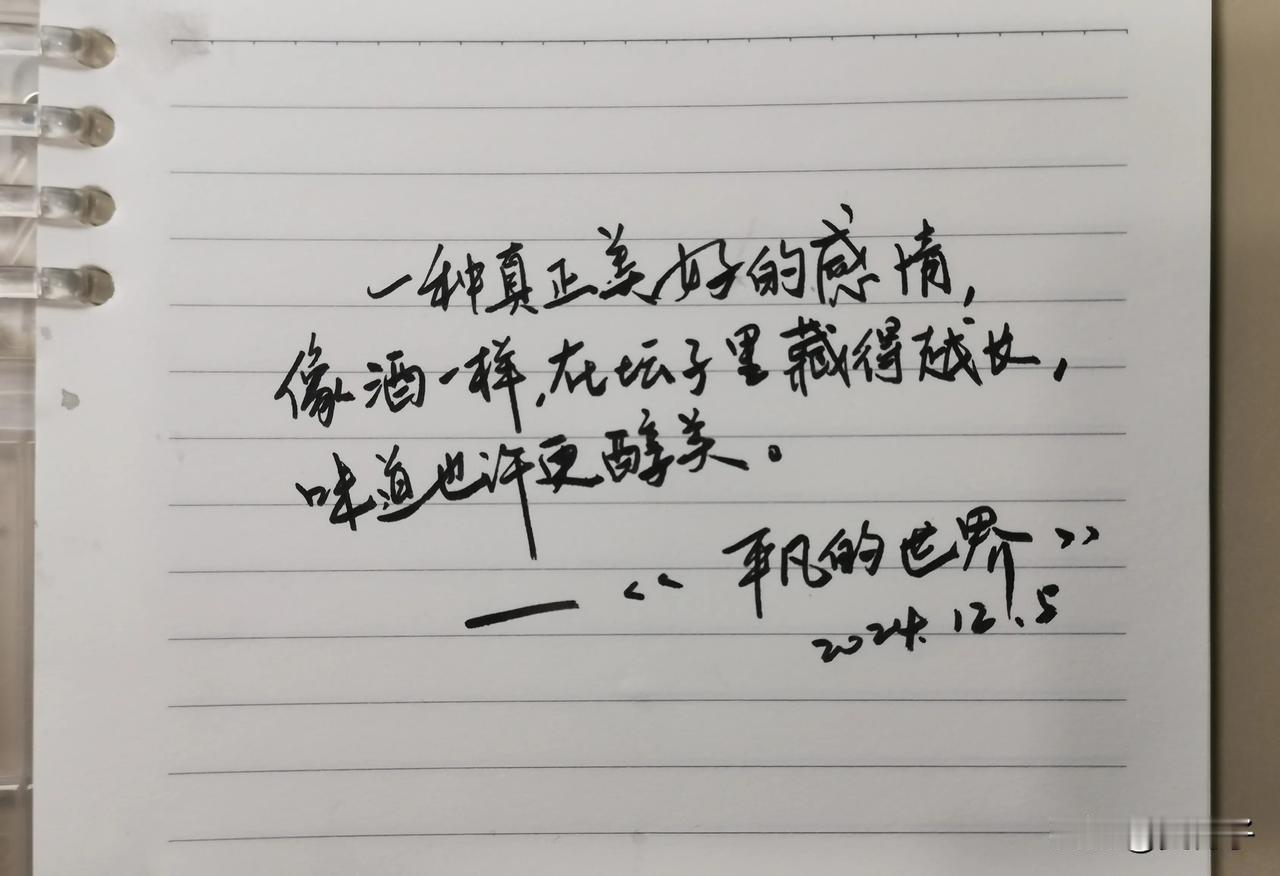 一种真正美好的感情，
像酒一样，在坛子里藏得越长，
味道也许更醇美。
— 《平凡的世界》
2024.12.5